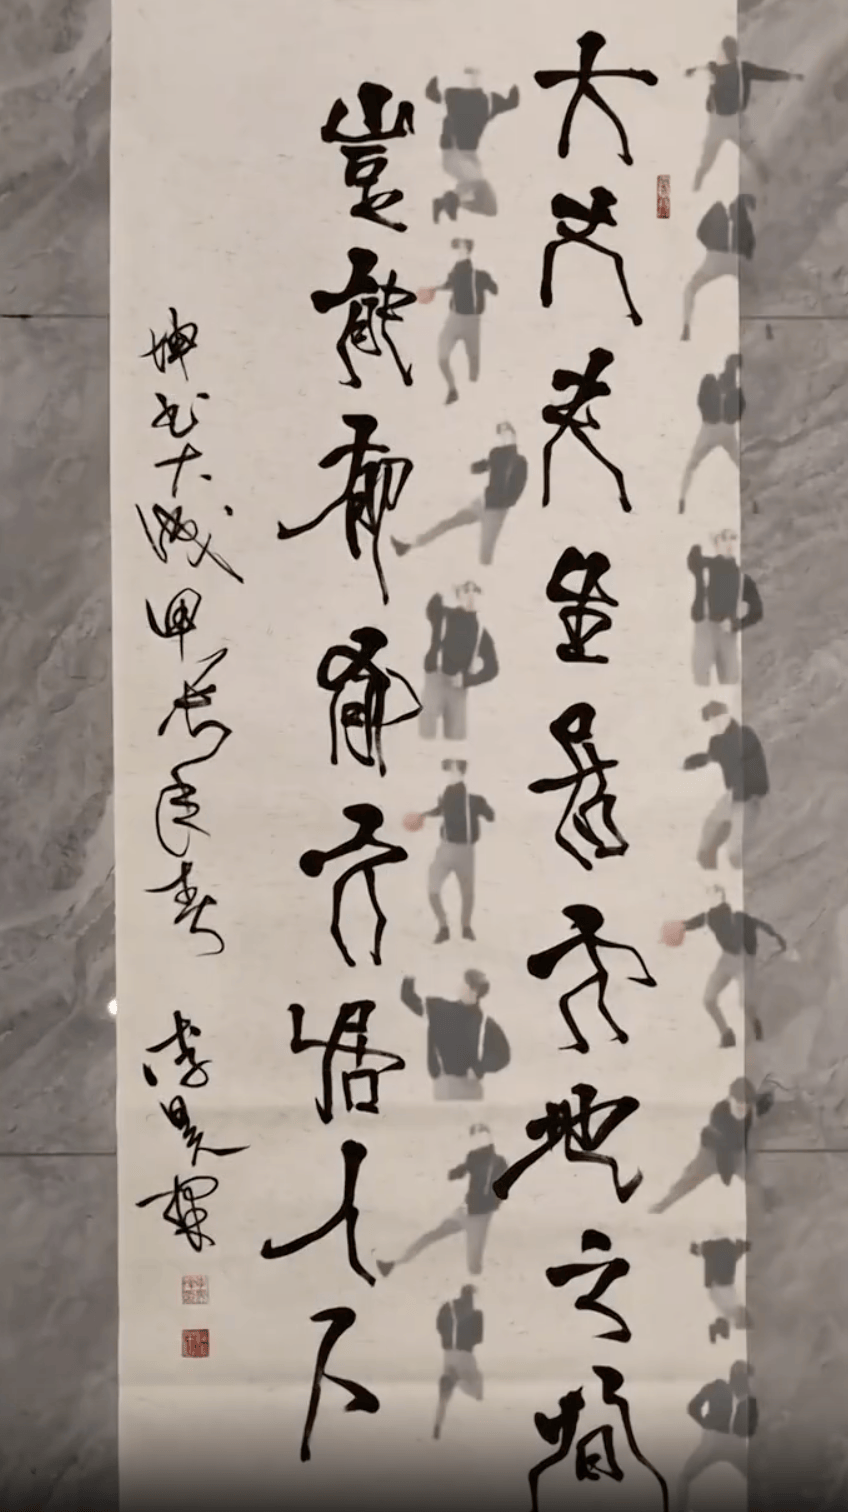 大丈夫生居天地之間
豈能郁郁久居人下
坤书大成甲辰年春 李昊